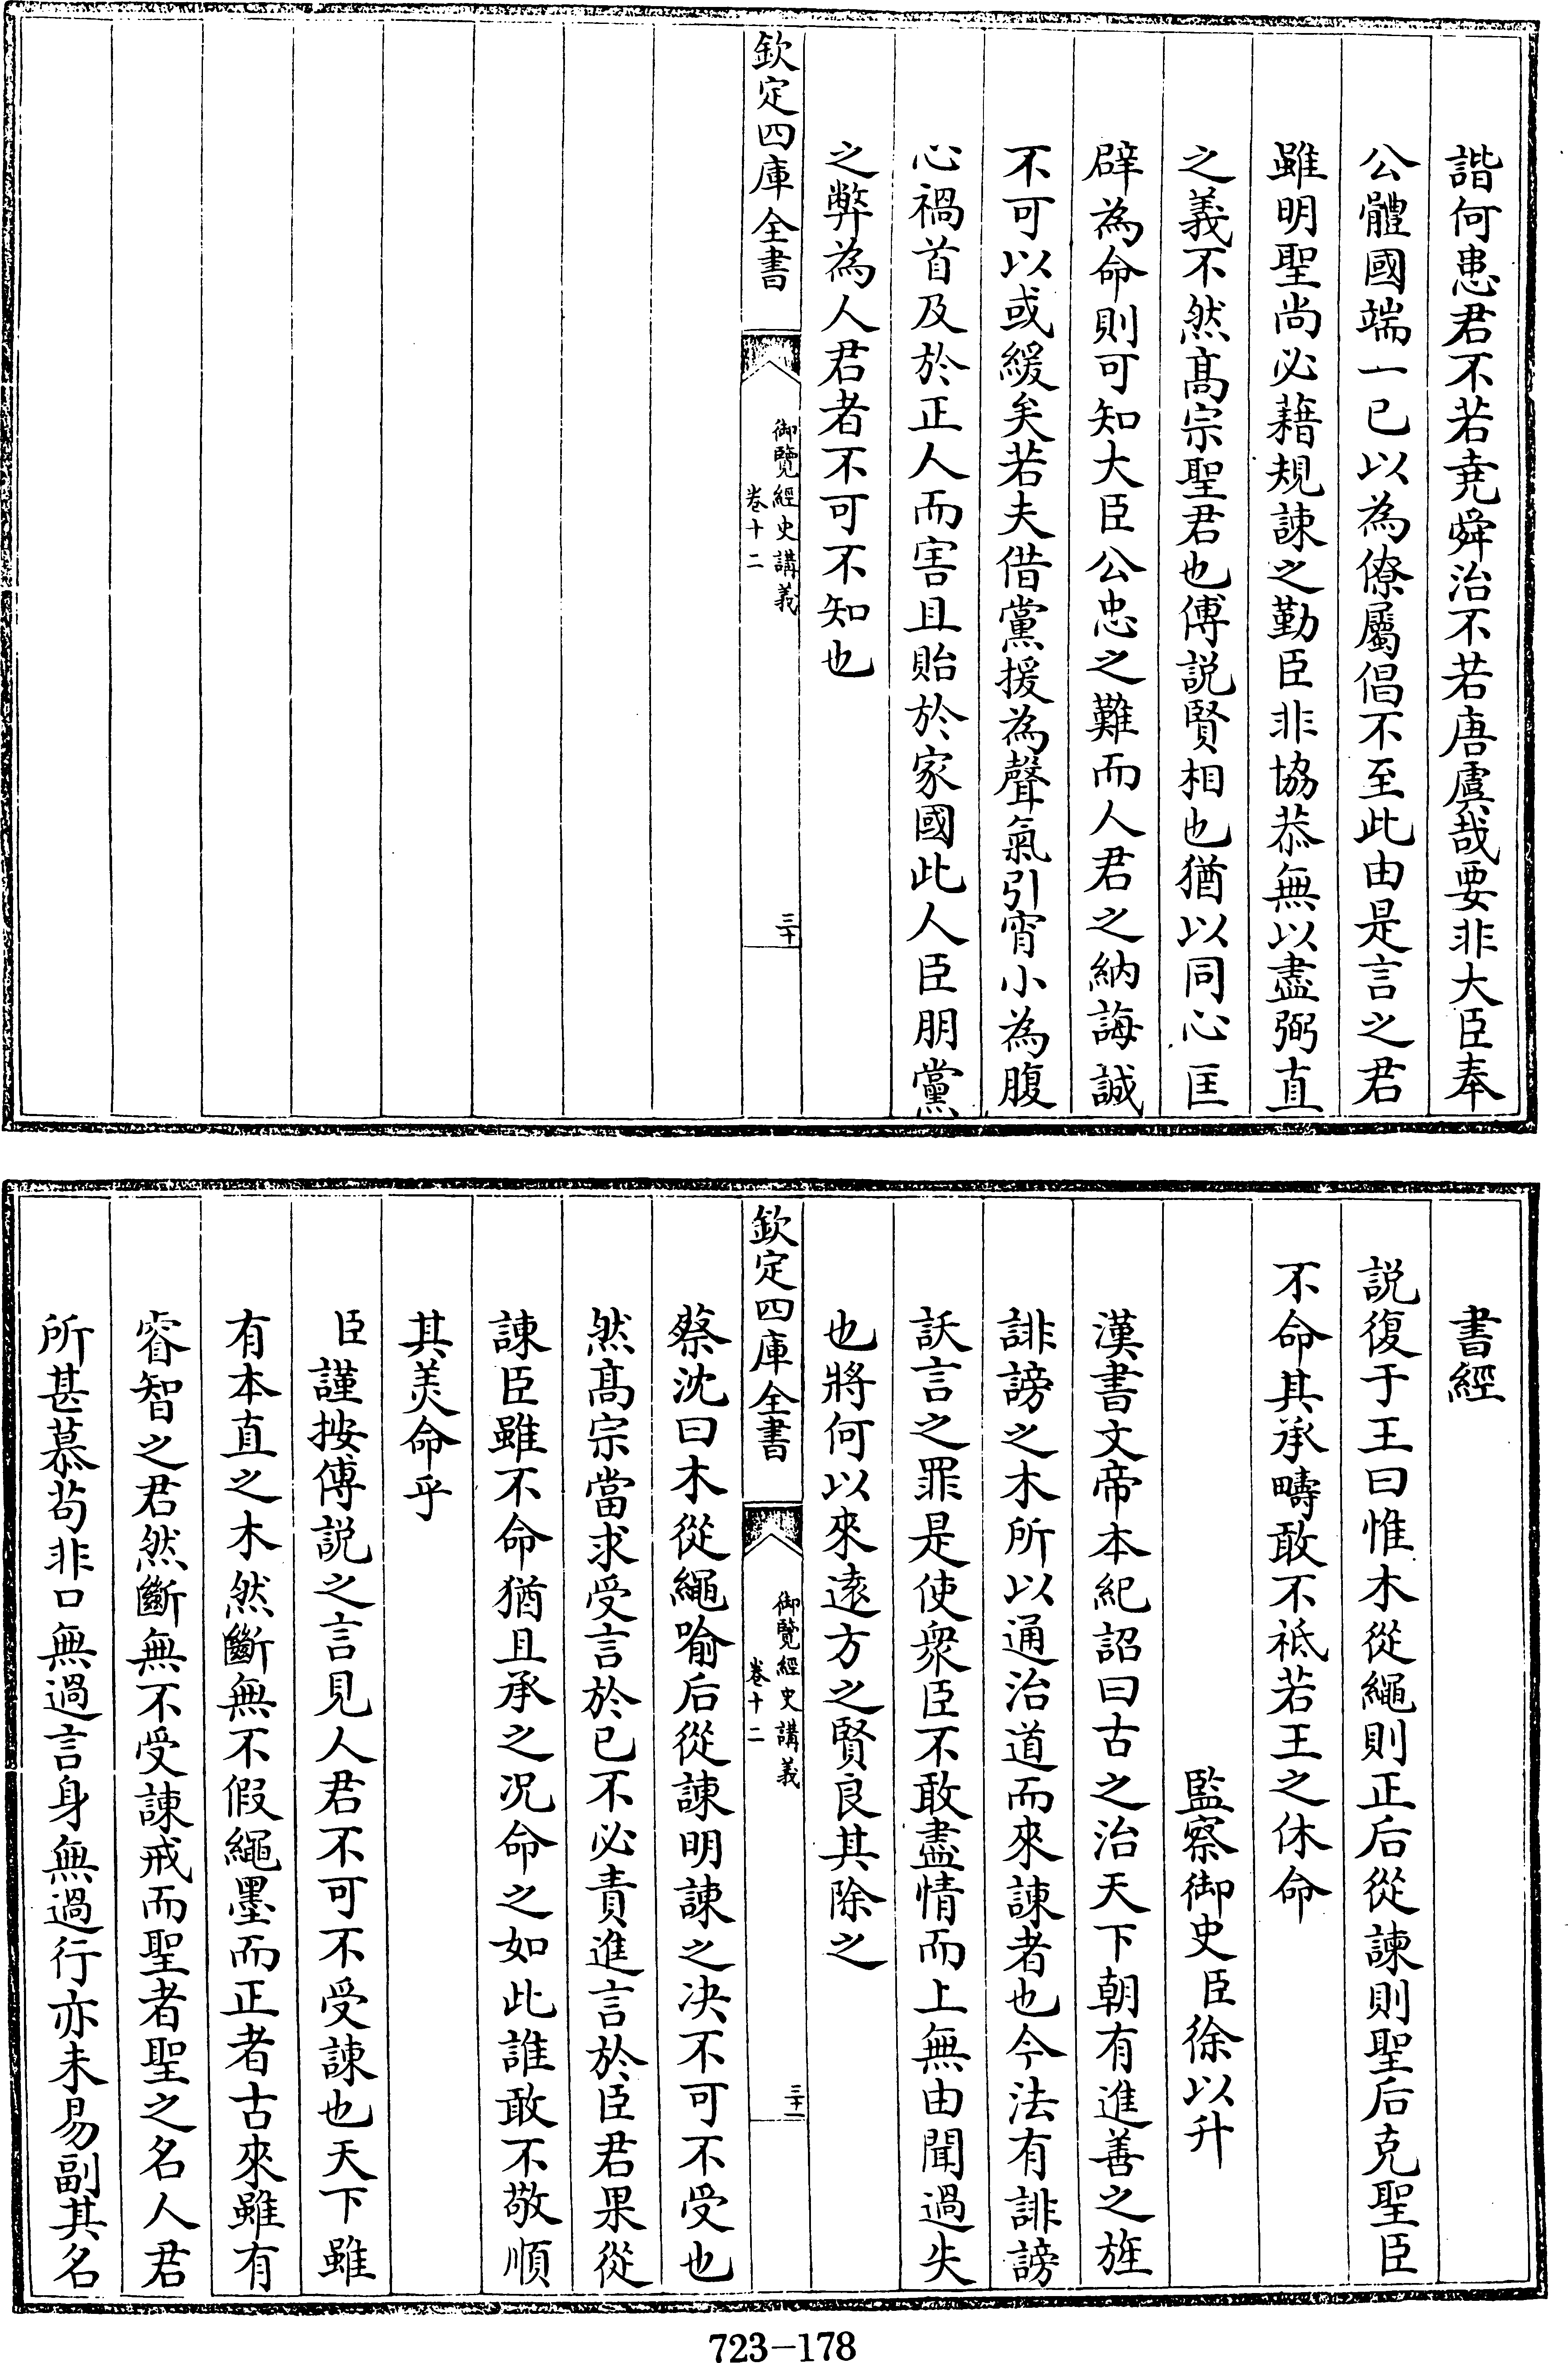 諧何患君不若堯舜治不若唐虞哉要非大臣奉
公體國端一已以為僚屬倡不至此由是言之君
雖明聖尚必藉規諫之勤臣非協恭無以盡弼直
之義不然髙宗聖君也傅説賢相也猶以同心匡
辟為命則可知大臣公忠之難而人君之納誨誠
不可以或緩矣若夫借黨援為聲氣引宵小為腹
心禍首及於正人而害且貽於家國此人臣朋黨
之弊為人君者不可不知也
欽定四庫全書
御覽經史講義
卷十二
三十
書經
説復于王曰惟木從繩則正后從諫則聖后克聖臣
不命其承疇敢不祗若王之休命
監察御史臣徐以升
漢書文帝本紀詔曰古之治天下朝有進善之旌
誹謗之木所以通治道而來諫者也今法有誹謗
訞言之罪是使衆臣不敢盡情而上無由聞過失
也將何以來逺方之賢良其除之
欽定四庫全書
御覽經史講義
卷十二
三十一
蔡沈曰木從繩喻后從諫明諫之决不可不受也
然髙宗當求受言於已不必責進言於臣君果從
諫臣雖不命猶且承之况命之如此誰敢不敬順
其美命乎
臣謹按傅説之言見人君不可不受諫也天下雖
有本直之木然斷無不假繩墨而正者古來雖有
睿智之君然斷無不受諫戒而聖者聖之名人君
所甚慕茍非口無過言身無過行亦未易副其名
723-178